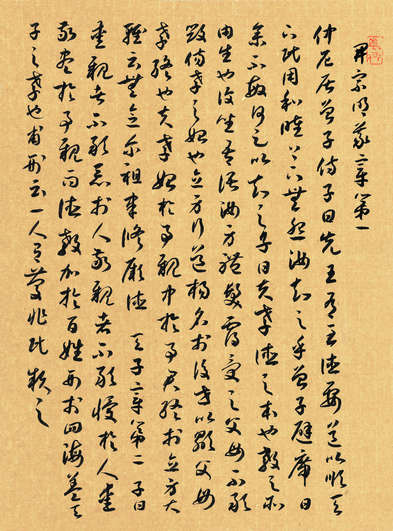 開宗明義章第一
仲尼居曾子侍子曰先王有至德要道以順天
下民用和睦上下無怨汝知之乎曾子避席曰
參不敏何足以知之子曰夫孝德之本也教之所
由生也復坐吾語汝身體髮膚受之父母不敢
毀傷孝之始也立身行道揚名於後世以顯父母
孝之終也夫孝始於事親中於事君終於立身大
雅云無念爾祖聿修厥德 天子章第二 子曰
愛親者不敢惡於人敬親者不敢慢於人愛
敬盡於事親而德教加於百姓刑於四海蓋天
子之孝也甫刑云一人有慶兆民賴之